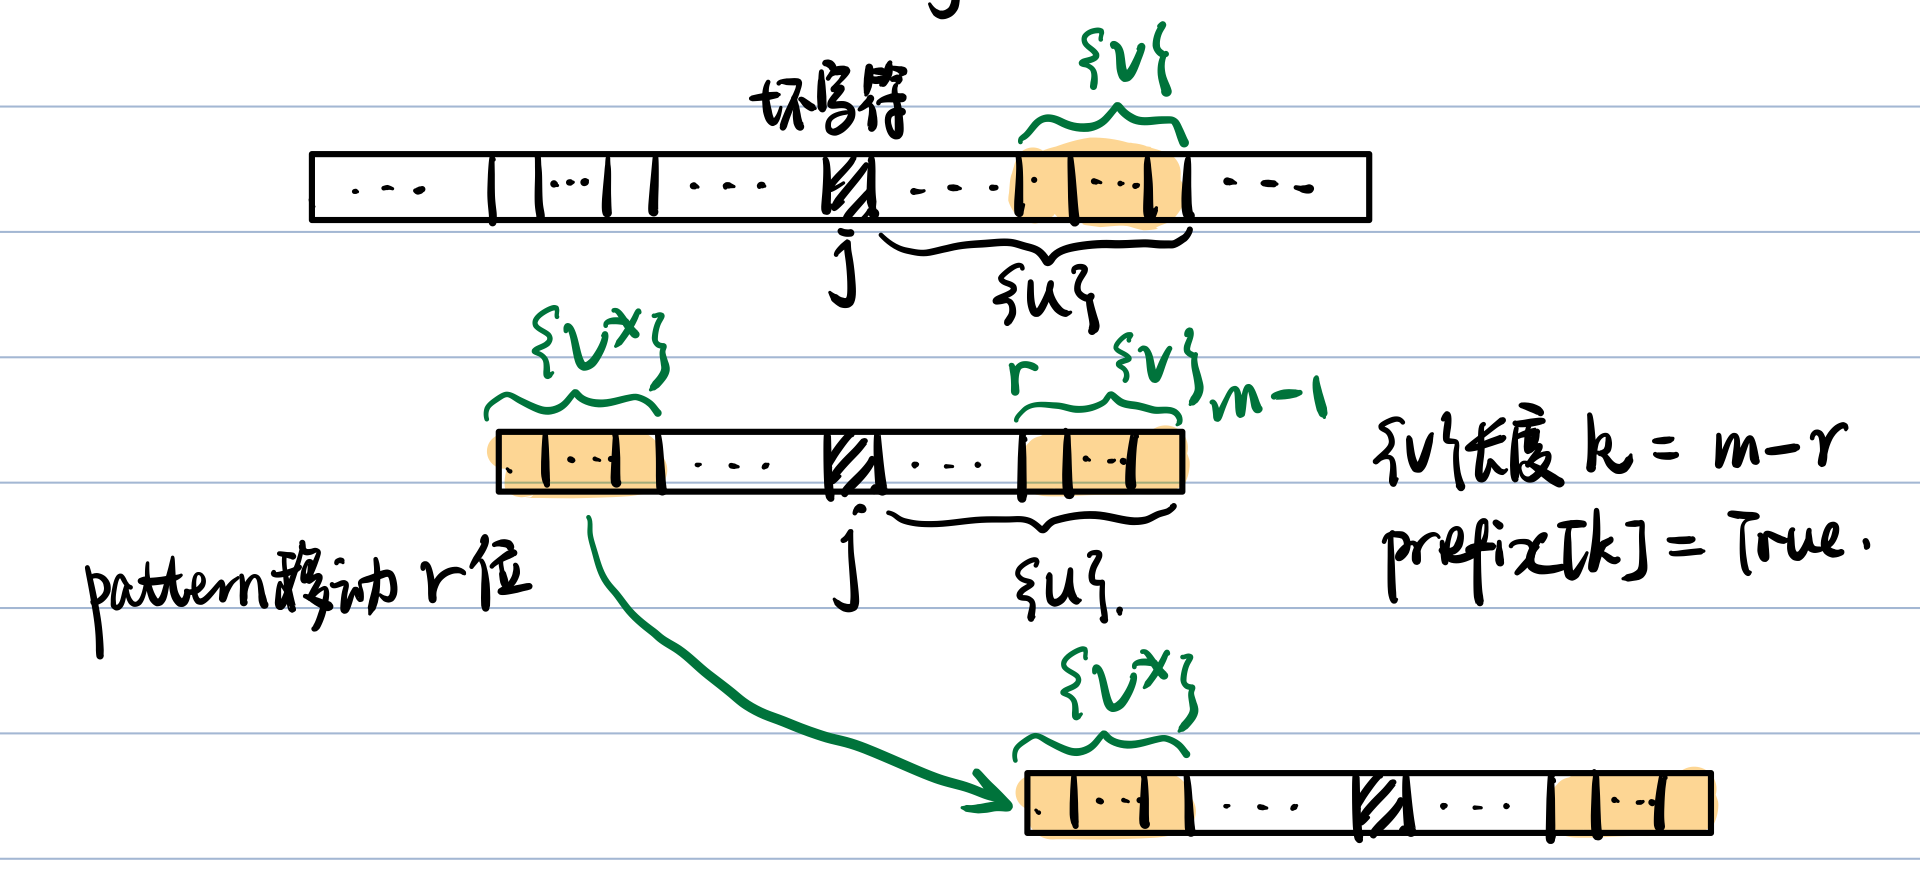 坏字符
{v{
j
{u{
{v*}
r
{v}
m-1
{v{长度 k = m-r
prefix[k] = True.
j
{u{.
pattern移动 r位
{v*}